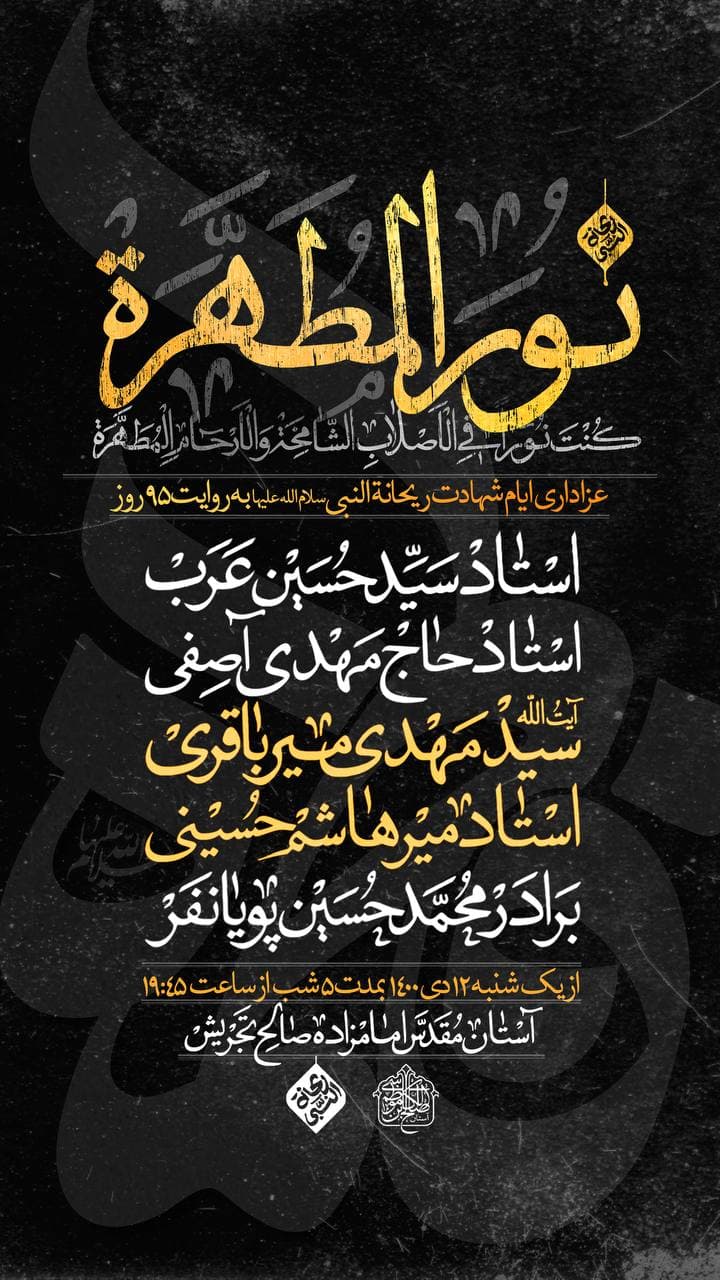 نور المطهرة
ریحانة النبی
کُنْتَ نُوراً فِی الْأَصْلابِ الشَّامِخَةِ وَ الْأَرْحَامِ الْمُطَهَّرَةِ
عزاداری ایام شهادت ریحانة النبی سلام الله علیها به روایت ۹۵ روز
استاد سَیِّد حُسَیْن عَرَبْ
استاد حاج مَهْدی آصِفی
آیتُ اللّه
سید مَهْدی میرباقری
استاد میرهاشم حُسینی
بَرادَر مُحَمَّد حُسَیْن پویانفَرْ
از یک شنبه ۱۲ دی ۱۴۰۰ بمدت ۵ شب از ساعت ۱۹:۴۵
آستان مُقَدَّس امامزاده صالح تَجْریش
ریحانة النبی